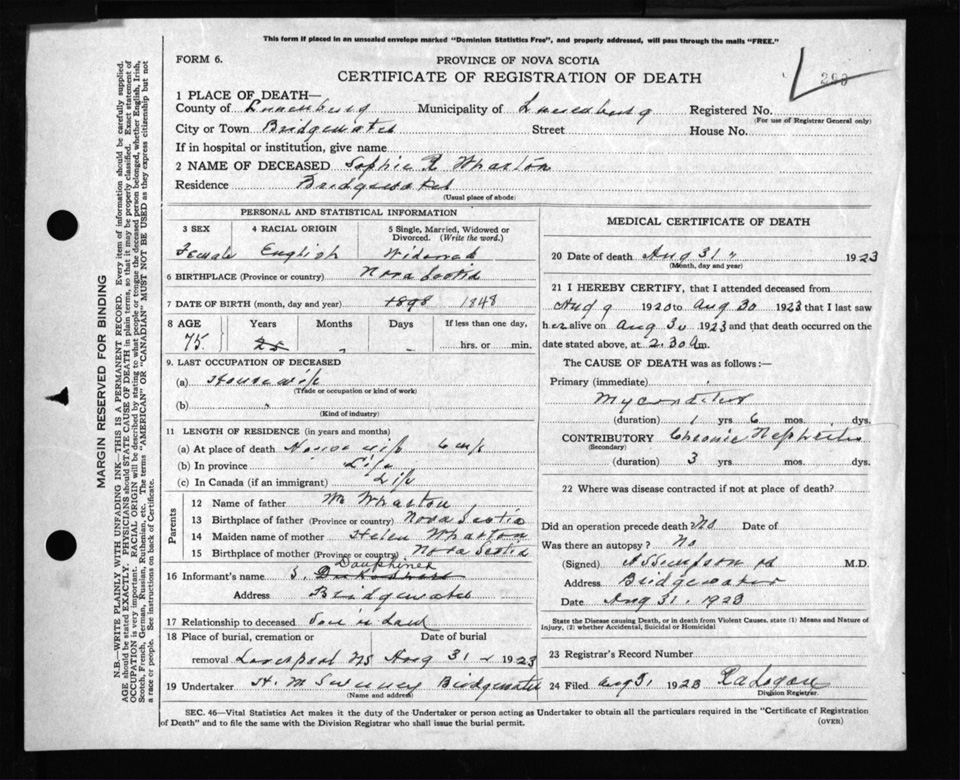 This form if placed in an unsealed envelope marked "Dominion Statistics Free", and properly addressed, will pass through the mails "FREE."
FORM 6.
PROVINCE OF NOVA SCOTIA
CERTIFICATE OF REGISTRATION OF DEATH
1 PLACE OF DEATH—
County of Lunenburg Municipality of Lunenburg Registered No.
(For use of Registrar General only)
City or Town Bridgewater Street House No.
If in hospital or institution, give name
2 NAME OF DECEASED Sophie R Wharton
Residence Bridgewater
(Usual place of abode)
PERSONAL AND STATISTICAL INFORMATION
3 SEX 4 RACIAL ORIGIN 5 Single, Married, Widowed or Divorced. (Write the word.)
Female English Widowed
6 BIRTHPLACE (Province or country) Nova Scotia
7 DATE OF BIRTH (month, day and year) 1898 1848
8 AGE Years Months Days If less than one day,
75 hrs. or min.
9. LAST OCCUPATION OF DECEASED
(a) Housewife
(Trade or occupation or kind of work)
(b)
(Kind of industry)
11 LENGTH OF RESIDENCE (in years and months)
(a) At place of death Housewife 6 mos
(b) In province Life
(c) In Canada (if an immigrant) Life
Parents
12 Name of father Wm Wharton
13 Birthplace of father (Province or country) Nova Scotia
14 Maiden name of mother Helen Wharton
15 Birthplace of mother (Province or country) Nova Scotia
Dauphinee
16 Informant's name S.
Address Bridgewater
17 Relationship to deceased Son in Law
18 Place of burial, cremation or Date of burial
removal Liverpool NS Aug 31 1923
19 Undertaker H. M Sweeney Bridgewater
(Name and address)
MEDICAL CERTIFICATE OF DEATH
20 Date of death Aug 31 1923
(Month, day and year)
21 I HEREBY CERTIFY, that I attended deceased from
Aug 9 1920 to Aug 30 1923 that I last saw
her alive on Aug 30 1923 and that death occurred on the
date stated above, at 2.30 a m.
The CAUSE OF DEATH was as follows:—
Primary (immediate)
Myocarditis
(duration) 1 yrs 6 mos. dys.
CONTRIBUTORY Chronic Nephritis
(Secondary)
(duration) 3 yrs. mos. dys.
22 Where was disease contracted if not at place of death?
Did an operation precede death? No Date of
Was there an autopsy? No
(Signed) M.D.
Address Bridgewater
Date Aug 31. 1923
State the Disease causing Death, or in death from Violent Causes, state (1) Means and Nature of Injury, (2) whether Accidental, Suicidal or Homicidal
23 Registrar's Record Number
24 Filed Aug 31 1923 Ra Logan
Division Registrar
SEC. 46—Vital Statistics Act makes it the duty of the Undertaker or person acting as Undertaker to obtain all the particulars required in the "Certificate of Registration
of Death" and to file the same with the Division Registrar who shall issue the burial permit.
(OVER)
MARGIN RESERVED FOR BINDING
N.B.—WRITE PLAINLY WITH UNFADING INK—THIS IS A PERMANENT RECORD. Every item of information should be carefully supplied.
AGE should be stated EXACTLY. PHYSICIANS should STATE CAUSE OF DEATH in plain terms, so that it may be properly classified. Exact statement of
OCCUPATION is very important. RACIAL ORIGIN will be described by stating to what people or tongue the deceased person belonged, whether English, Irish,
Scotch, French, German, Russian, Ruthenian, etc. The terms "AMERICAN" or "CANADIAN" MUST NOT BE USED as they express citizenship but not
a race or people. See instructions on back of Certificate.